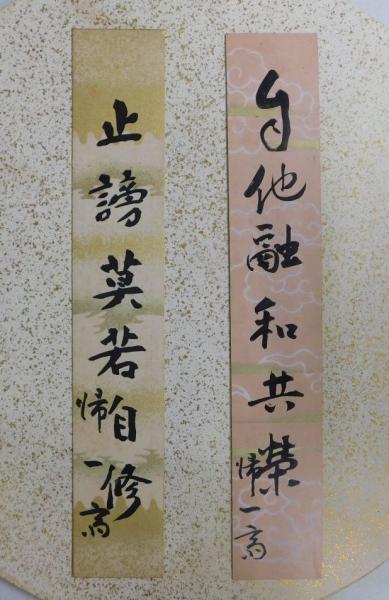 自他融和共榮
帰一斎
止謗莫若自修
帰一斎